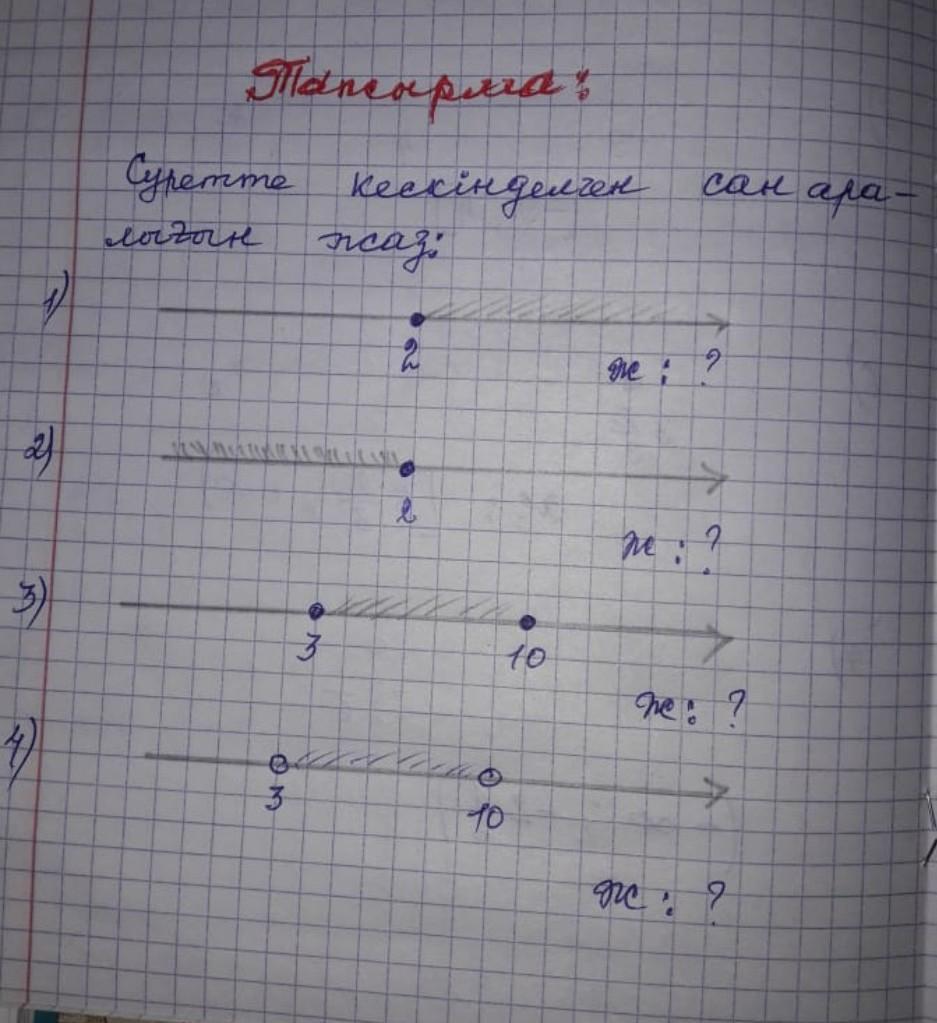 Тапсырма:
Суретте кескінделген сан ара-
лығын жаз:
1)
2
ж : ?
2)
2
ж : ?
3)
3 10
ж : ?
4)
3 10
ж : ?